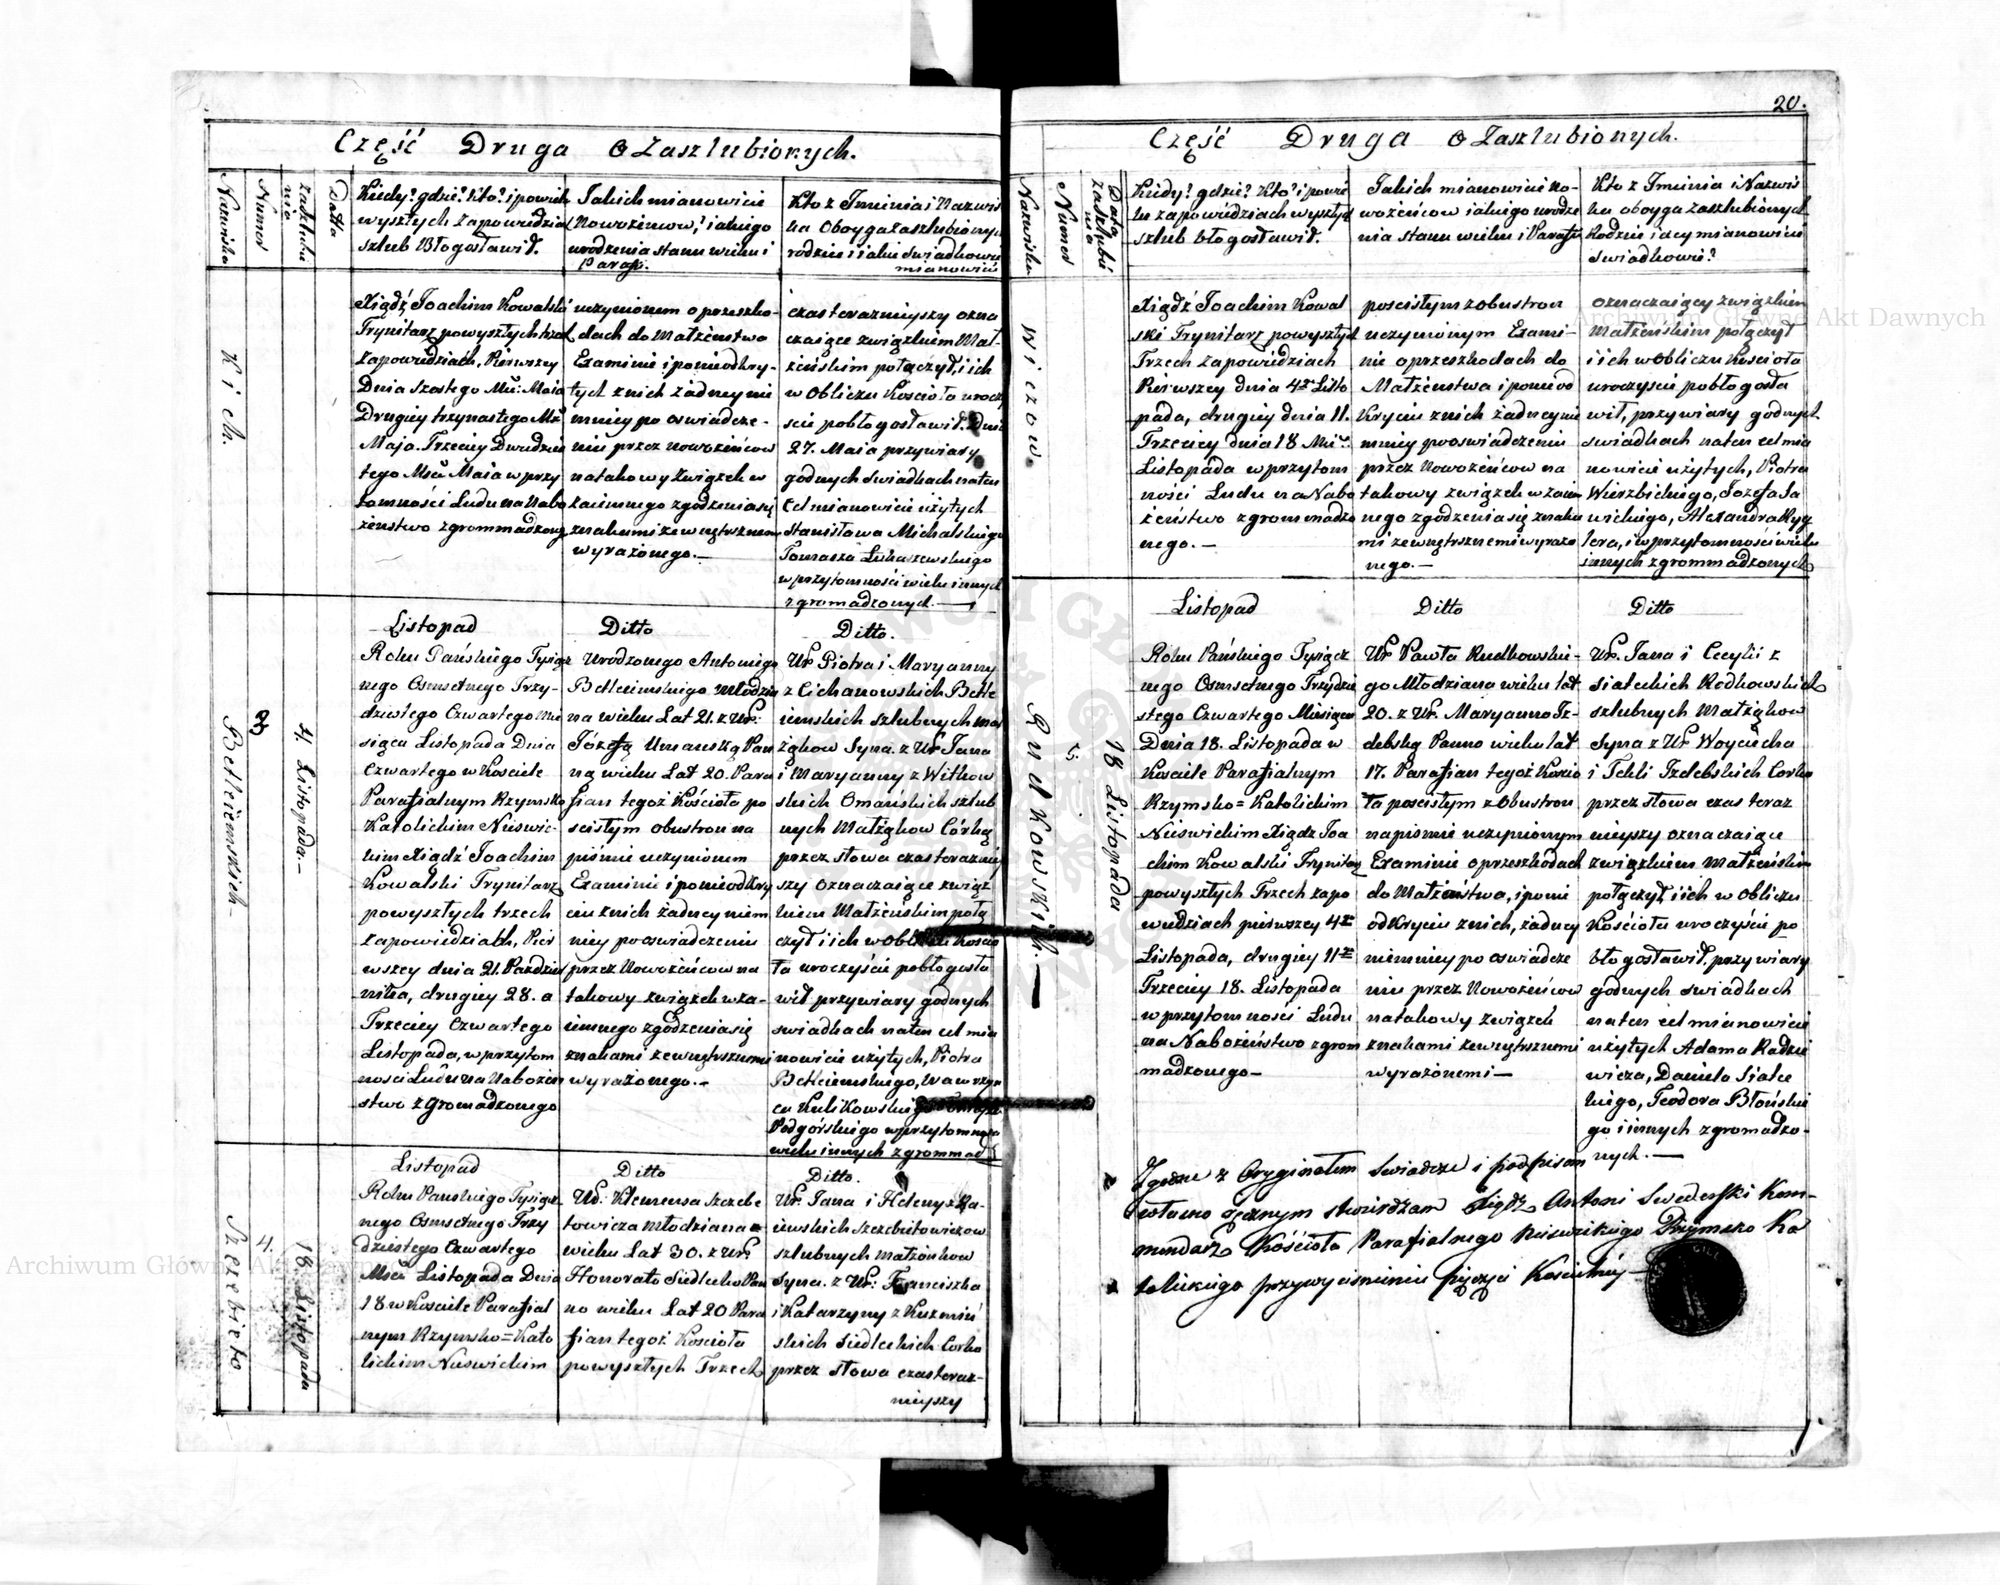 Część Druga O Zaszlubionych.
Nazwisko
Numer
Datta zaszlubie nia
Kiedy? gdzie? Kto? i po wielu
wyszłych Zapowiedziach
szlub Błogosławił.
Jakich mianowicie
Nowożencow, i jakiego
urodzenia stanu wieku i
Paraf:
Kto z Imienia i Nazwis
ka oboyga zaszlubionych
rodzice i jakie swiadkowie
mianowicie
Kich.
Xiądz Joachim Kowalski
Trynitarz po wyszłych trzech
Zapowiedziach, Pierwszey
Dnia szostego Mca: Maia
Drugiey trzynastego Mca
Maja. Trzeciey Dwudzies
tego Msca Maia w przy
tomności Ludu na Nabo
żeństwo zgrommadzone
uczynionem o przeszko-
dach do Małżeństwa
Examinie i po nieodkry-
tych z nich żadney nie
mniey po oswiadcze-
niu przez nowożeńcow
na takowy Związek w
zaiemnego zgodzenia się
znakami zewnętrznemi
wyrażonego.—
czas terazniejszy ozna
czaiące związkiem Mał-
żeńskim połączył, i ich
w Obliczu Kościoła urocz
scie pobłogosławił. Dnia
27. Maia przy wiary
godnych Swiadkach na ten
Cel mianowicie użytych
Stanisława Michalskiego
Tomasza Łukaszewskiego
w przytomności wielu innych
zgromadzonych.—
Betleiemskich—
3
4. Listopada.—
Listopad
Roku Pańskiego Tysiąc
nego Osmsetnego Trzy-
dziestego Czwartego Mie
siąca Listopada Dnia
Czwartego w Kosciele
Parafialnym Rzymsko
Katolickim Nieswic-
kim Xiądz Joachim
Kowalski Trynitarz
po wyszłych trzech
Zapowiedziach, Pier
wszey dnia 21. Paździer
nika, drugiey 28. a
Trzeciey Czwartego
Listopada, w przytom
nosci Ludu na Nabożeń
stwo zgromadzonego
Ditto
Urodzonego Antoniego
Betleiemskiego Młodzia
na wieku Lat 21. z Ur:
Józefą Umanską Pan
ną wieku Lat 20. Para
fian tegoż Kościoła po
scisłym obustron na
piśmie uczynionem
Examinie i po nieodkry
ciu z nich żadney niem
niey po oswiadczeniu
przez Nowożeńcow na
takowy związek w za-
iemnego zgodzenia się
znakami zewnętrznemi
wyrażonego.—
Ditto.
Ur Piotra i Maryanny
z Cichanowskich Betle
iemskich szlubnych mał
żąkow Syna. z Ur Jana
i Maryanny z Witkow
skich Omańskich szlub
nych Małżąkow Córką
przez słowa czas terazniey
szy oznaczaiące związ
kiem Małżeńskim połą
czył i ich w obliczu Koscio
ła uroczyście pobłogosła
wił przy wiary godnych
swiadkach na ten cel mia
nowicie użytych, Piotra
Betleiemskiego, Wawrzyń
ca Kulikowskiego
Podgórskiego w przytomności
wielu innych zgrommad
Szczebieto
4.
18 Listopada
Listopad
Roku Panskiego Tysiąc
nego Osmsetnego Trzy
dziestego Czwartego
Mscá Listopada Dnia
18 w Kosciele Parafial
nym Rzymsko=Kato
lickim Nieswickim
Ditto
Ur: Klemensa Szczebie
towicza Młodziana
wieku Lat 30. z Ur:
Honorato Siedlecko Pan
no wieku Lat 20 Para
fian tegoż Kosciola
po wyszłych Trzech
Ditto.
Ur: Jana i Heleny z Ra-
iewskich Szczebietowiczow
szlubnych małżonkow
Syna. z Ur: Franciszka
i Katarzyny z Kuzmiń
skich Siedleckich Corko
przez słowa czas teraz-
nieyszy
20.
Część Druga O Zaszlubionych.
Nazwisko
Numer
Data zaszlubie nia
Kiedy? gdzie? Kto? i po wie
lu zapowiedziach wyszłych
szlub błogosławił.
Jakich mianowicie no-
wożeńcow i jakiego urodze
nia stanu wieku i Parafii
Kto z Imienia i Nazwis
ka oboyga zaszlubionych
Rodzice i iacy mianowicie
Swiadkowie?
wiczow.
Xiądz Joachim Kowal
ski Trynitarz po wyszłych
Trzech Zapowiedziach
Pierwszey dnia 4go Listo
pada, drugiey dnia 11.
Trzeciey dnia 18 Mca
Listopada w przytom
ności Ludu na Nabo
żeństwo zgrommadzo
nego.—
po scisłym z obustron
uczynionym Exami-
nie o przeszkodach do
Małżenstwa i po nieod
Kryciu z nich żadney nie
mniey po oswiadczeniu
przez Nowożeńcow na
takowy związek w zaiem
nego zgodzenia się znaka
mi zewnętrznemi wyrażo
nego.—
oznaczaiący związkiem
Małżenskim połączył
i ich w Obliczu Kościoła
uroczyscie pobłogosła
wił, przy wiary godnych
swiadkach na ten cel mia
nowicie użytych, Piotra
Wierzbickiego, Jozefa Sa
wickiego, Alexandra Ryg
lera, i w przytomnosci wielu
innych zgrommadzonych
Rudkowskich.—
5.
18 Listopada
Listopad
Roku Pańskiego Tysiącz
nego Osmsetnego Trzydzie
stego Czwartego Miesiąca
Dnia 18. Listopada w
Kosciele Parafialnym
Rzymsko=Katolickim
Nieswickim Xiądz Joa
chim Kowalski Trynitarz
po wyszłych Trzech zapo
wiedziach pierwszey 4go
Listopada, drugiey 11go
Trzeciey 18. Listopada
w przytomności Ludu
na Nabożeństwo zgrom
madzonego—
Ditto
Ur Pawła Rudkowskie-
go Młodziana wieku lat
20. z Ur. Maryanno Iz-
debsko Panno wieku lat
17. Parafian tegoż Koscio
ła po scisłym z obustron
na piśmie uczynionym
Examinie o przeszkodach
do Małżeństwa, i po nie
odkryciu z nich, żadney
niemniey po oswiadcze
niu przez Nowożeńcow
na takowy związek
znakami zewnętrznemi
wyrażonemi—
Ditto
Ur. Jana i Cecylii z
Siateckich Rodkowskich
szlubnych Małżąkow
Syna z Ur Woyciecha
i Tekli Izdebskich Corko
przez słowa czas teraz
nieyszy oznaczaiące
związkiem Małżeńskim
połączył, i ich w Obliczu
Kościoła uroczyście po
błogosławił, przy wiary
godnych swiadkach
na ten cel mianowicie
użytych Adama Radzie
wicza, Daniela Siatec
kiego, Teodora Błońskie
go i innych zgromadzo-
nych.—
Zgodne z Oryginałem Swiadcze i podpisem
własno ręcznym stwierdzam Xiądz Antoni Kom-
mendarz Kościoła Parafialnego Nieswizkiego Rzymsko Ka
tolickiego przy wyciśnieniu pięczęci Kościelnéy—
Archiwum Główne Akt Dawnych
Archiwum Główne Akt Dawnych